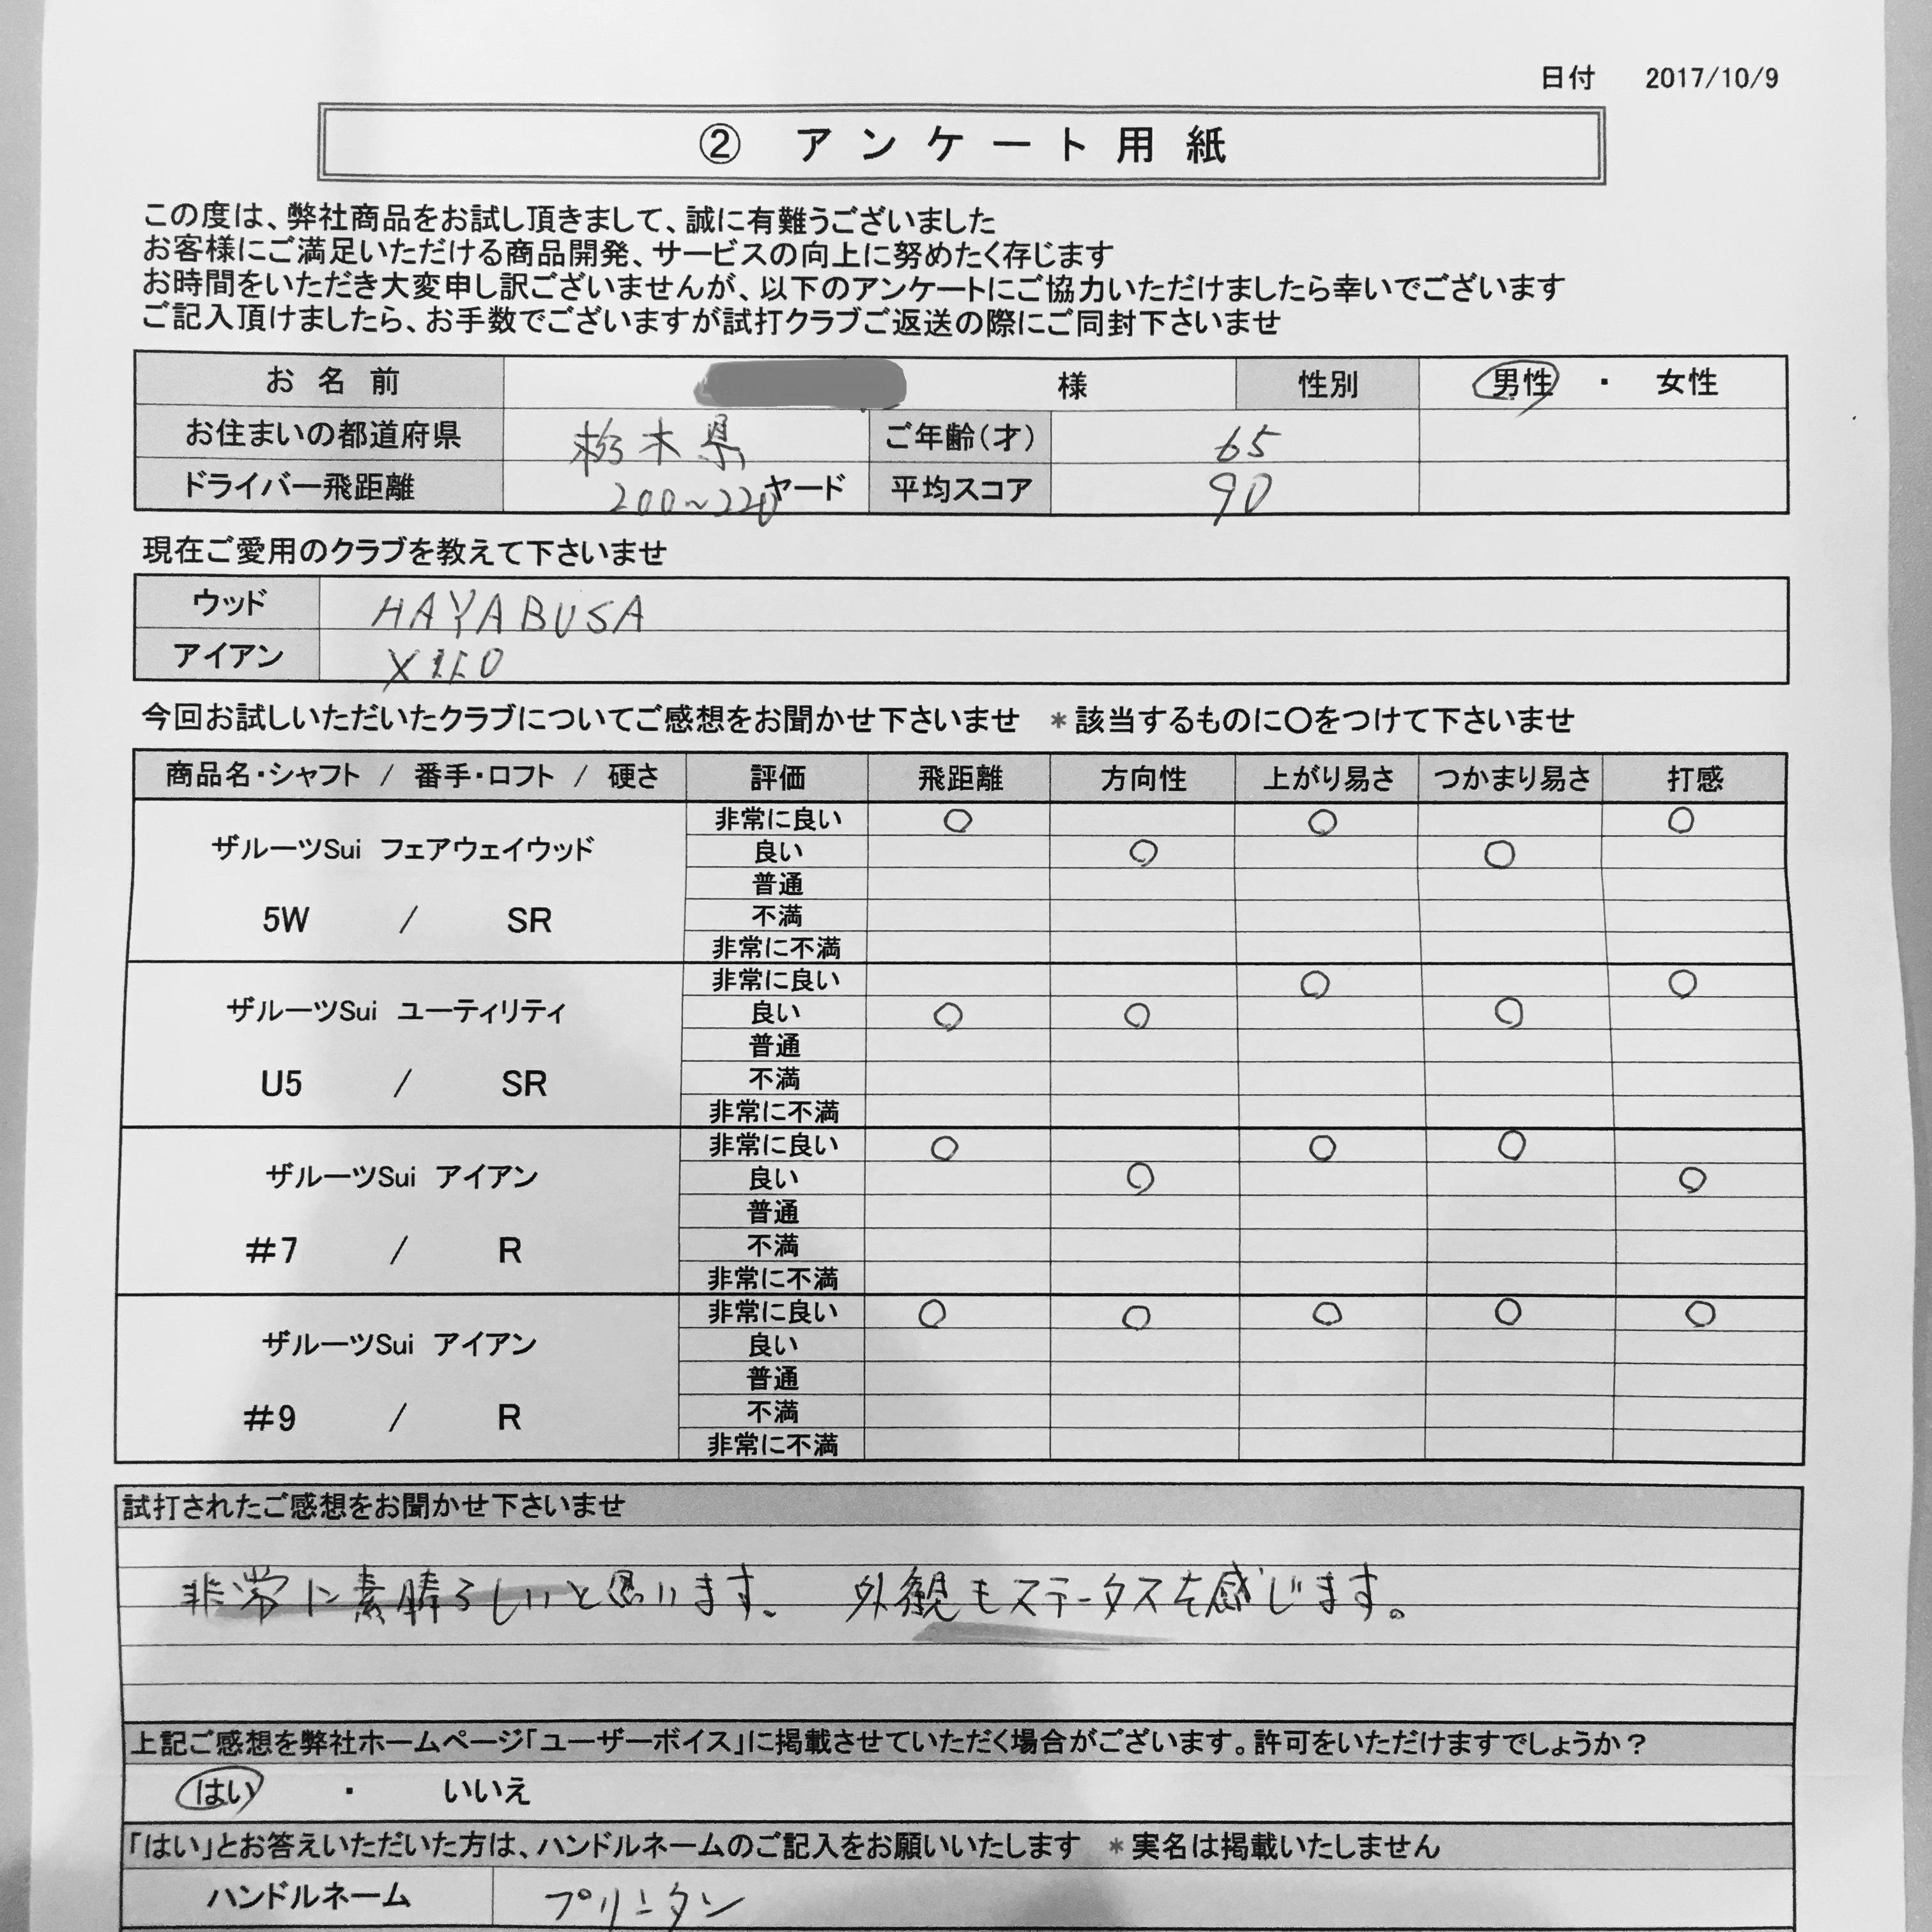 日付 2017/10/9
② アンケート用紙
この度は、弊社商品をお試し頂きまして、誠に有難うございました
お客様にご満足いただける商品開発、サービスの向上に努めたく存じます
お時間をいただき大変申し訳ございませんが、以下のアンケートにご協力いただけましたら幸いでございます
ご記入頂けましたら、お手数でございますが試打クラブご返送の際にご同封下さいませ
お名前 様 性別 男性 ・ 女性
お住まいの都道府県 栃木県 ご年齢(才) 65
ドライバー飛距離 200~220ヤード 平均スコア 90
現在ご愛用のクラブを教えて下さいませ
ウッド HAYABUSA
アイアン
今回お試しいただいたクラブについてご感想をお聞かせ下さいませ *該当するものに〇をつけて下さいませ
商品名・シャフト / 番手・ロフト / 硬さ 評価 飛距離 方向性 上がり易さ つかまり易さ 打感
ザルーツSui フェアウェイウッド
5W / SR
非常に良い ○ ○ ○
良い ○ ○
普通
不満
非常に不満
ザルーツSui ユーティリティ
U5 / SR
非常に良い ○ ○
良い ○ ○ ○
普通
不満
非常に不満
ザルーツSui アイアン
#7 / R
非常に良い ○ ○ ○
良い ○ ○
普通
不満
非常に不満
ザルーツSui アイアン
#9 / R
非常に良い ○ ○ ○ ○ ○
良い
普通
不満
非常に不満
試打されたご感想をお聞かせ下さいませ
非常に素晴らしいと思います、 外観もステータスを感じます。
上記ご感想を弊社ホームページ「ユーザーボイス」に掲載させていただく場合がございます。許可をいただけますでしょうか？
はい ・ いいえ
「はい」とお答えいただいた方は、ハンドルネームのご記入をお願いいたします *実名は掲載いたしません
ハンドルネーム プリンタン